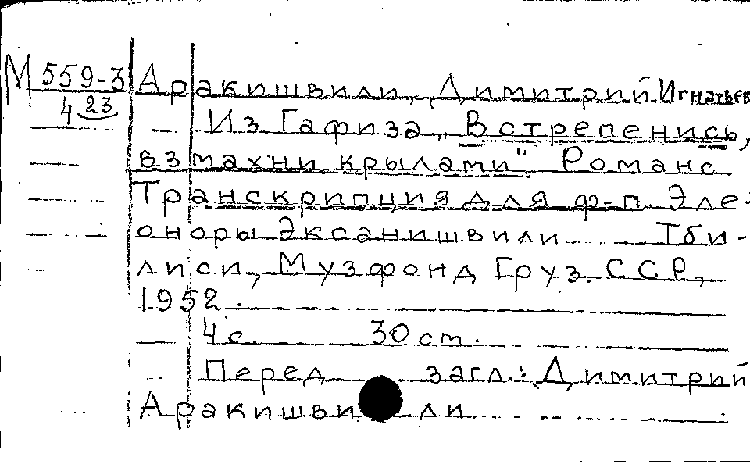 М 559-3 Аракишвили, Димитрий Игнатьев
4 23 Из Гафиза, Встрепенись,
взмахни крылами". Романс
Транскрипция для ф-п. Эле-
оноры Эксанишвили Тби-
лиси, Музфонд Груз. ССР,
1952.
4 с. 30 ст.
Перед загл.: Димитрий
Аракишвили